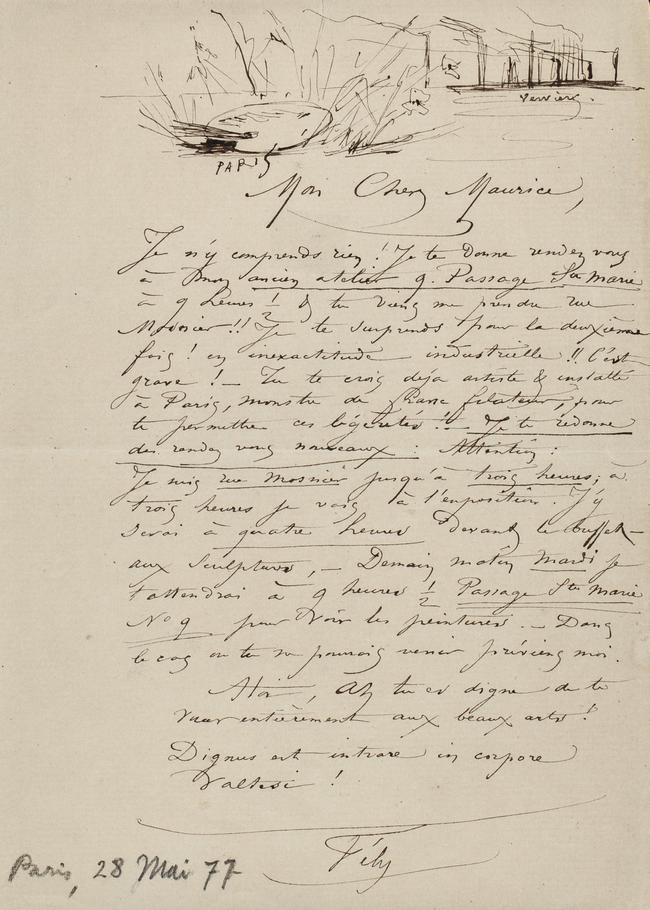 Verviers.
PARIS
Mon Cher Maurice,
Je n'y comprends rien ! Je te donne rendez vous
à mon ancien atelier 9. Passage Ste Marie
à 9 heures ½ & tu viens me prendre rue
Mosnier !! Je te surprends pour la deuxième
fois ! en inexactitude industrielle !! C'est
grave ! — Tu te crois déja artiste & installé
à Paris, monstre de filateur, pour
te permettre ces légèretés !! — Je te redonne
des rendez vous nouveaux : Attention :
Je suis rue Mosnier jusqu'à trois heures ; à
trois heures je vais à l'exposition. J'y
serai à quatre heures devant le buffet —
aux sculptures, — Demain matin Mardi je
t'attendrai à 9 heures ½ Passage Ste Marie
No 9 pour voir les peintures. — Dans
le cas ou tu ne pourrais venir préviens moi.
tu es digne de te
vouer entièrement aux beaux arts !
Dignus est intrare in corpore
Valtesi !
Fély
Paris, 28 Mai 77